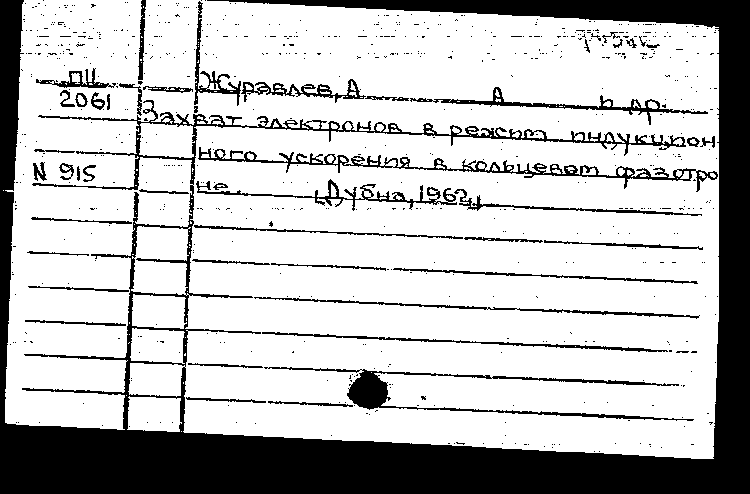 ПЦ Журавлев, А А и др.
2061 Захват электронов в режим индукцион
ного ускорения в кольцевом фазотро
N 915 не. [Дубна, 1962]